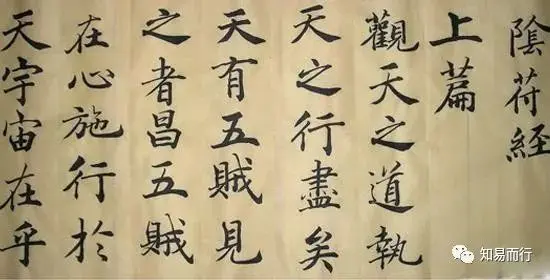 陰符経
上篇
觀天之道執
天之行盡矣
天有五賊見
之者昌五賊
在心施行於
天宇宙在乎
知易而行